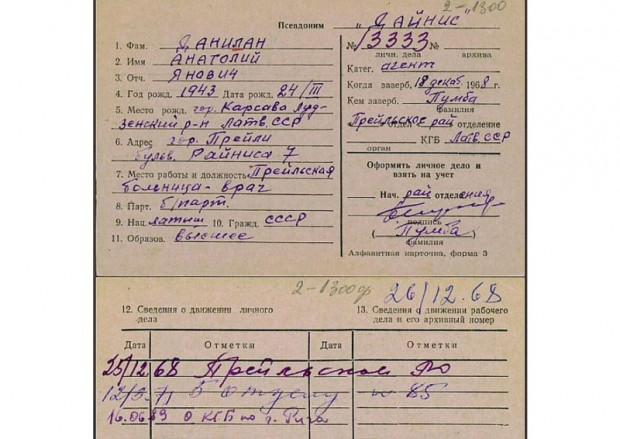 2-1300
Псевдоним „Дайнис"
1. Фам. Данилан
2. Имя Анатолий
3. Отч. Янович
4. Год рожд. 1943 Дата рожд. 24/III
5. Место рожд. гор. Карсава Луд-
зенский р-н Латв. ССР
6. Адрес гор. Прейли
бульв. Райниса 7
7. Место работы и должность Прейльская
больница - врач
8. Парт. б/парт.
9. Нац. латыш 10. Гражд. СССР
11. Образов. высшее
№ 13333 №
личн. дела архива
Катег. агент
Когда заверб. 18 декаб. 1968 г.
Кем заверб. Пумба
фамилия
Прейльское рай отделение
КГБ Латв. ССР
орган
Оформить личное дело и
взять на учет
Нач. рай отделения
подпись
( Пумба )
фамилия
Алфавитная карточка, форма 3
2-1300 26/12.68
12. Сведения о движении личного
дела
13. Сведения о движении рабочего
дела и его архивный номер
Дата Отметки Дата Отметки
25/12.68 Прейльское РО
5 Отделу
16.06.89 О КГБ по г. Рига